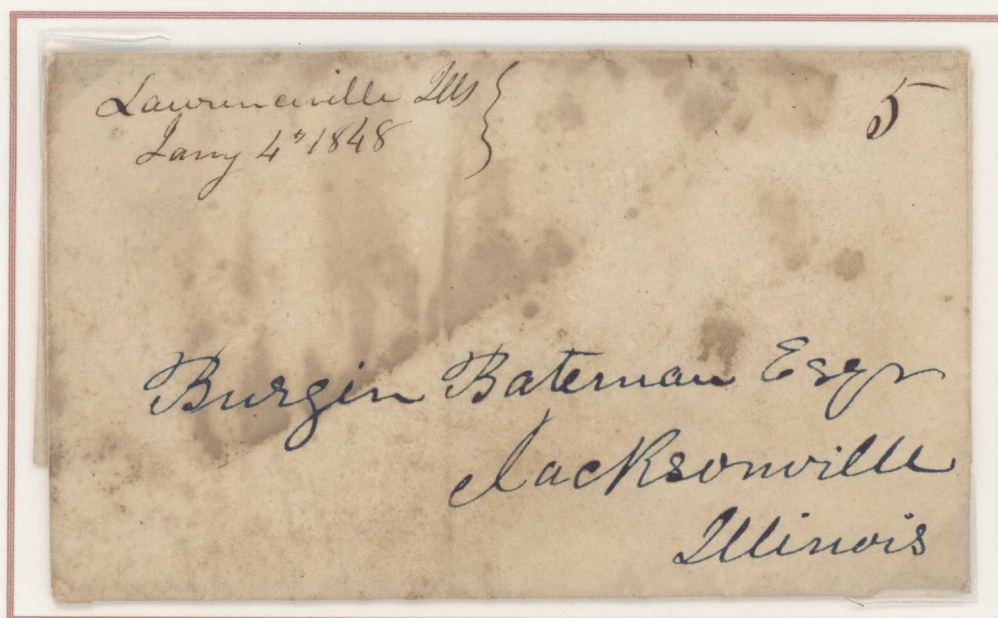 Lawrenceville Ills
Jany 4th 1848
5
Burgin Bateman Esqr
Jacksonville
Illinois